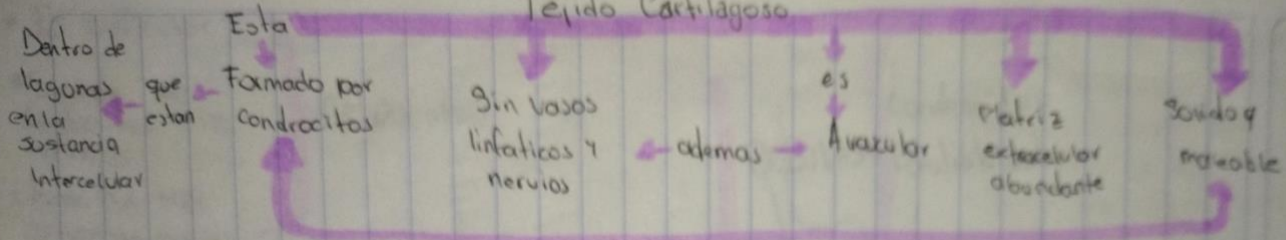 Tejido Cartilagoso
Esta
Formado por
condrocitos
que
estan
Dentro de
lagonas
en la
sustancia
Intercelular
Sin vasos
linfaticos y
nervios
ademas
es
Avaxular
Matriz
extracelular
abundante